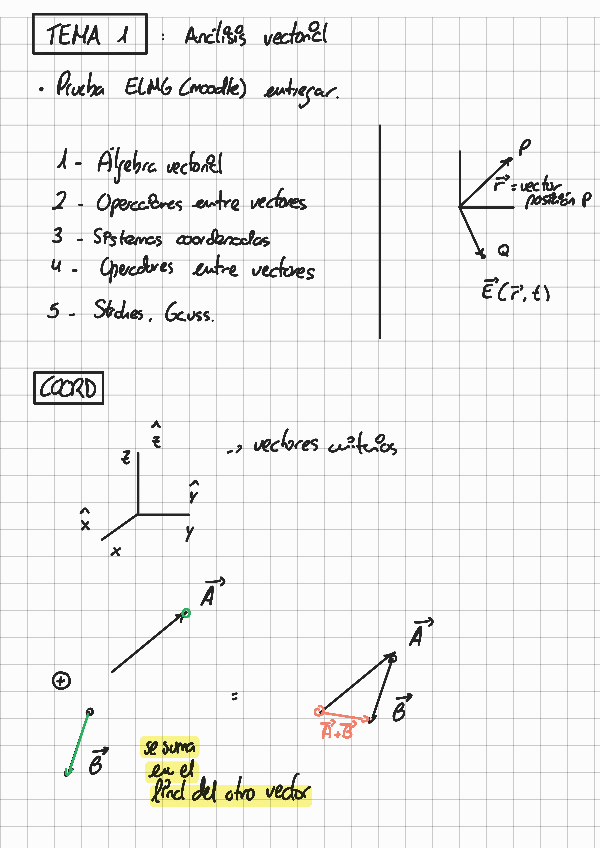 TEMA 1 : Análisis vectorial
• Prueba ELMG (moodle) entregar.
1 - Álgebra vectorial
2 - Operaciones entre vectores
3 - Sistemas coordenados
4 - Operadores entre vectores
5 - Stokes, Gauss.
P
r⃗ = vector
posición P
Q
E⃗ (r⃗, t)
COORD
ẑ
z
-> vectores unitarios
ŷ
x̂
y
x
A⃗
A⃗
⊕
=
B⃗
A⃗+B⃗
B⃗
se suma
en el
final del otro vector